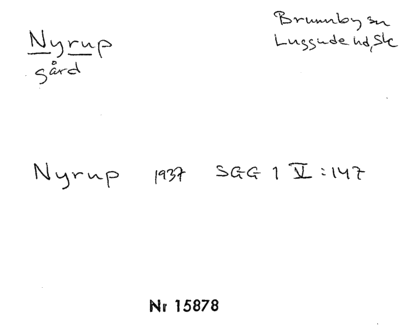 Nyrup
gård
Brunnby sn
Luggude hd, Sk
Nyrup 1937 SGG 1 V:147
Nr 15878